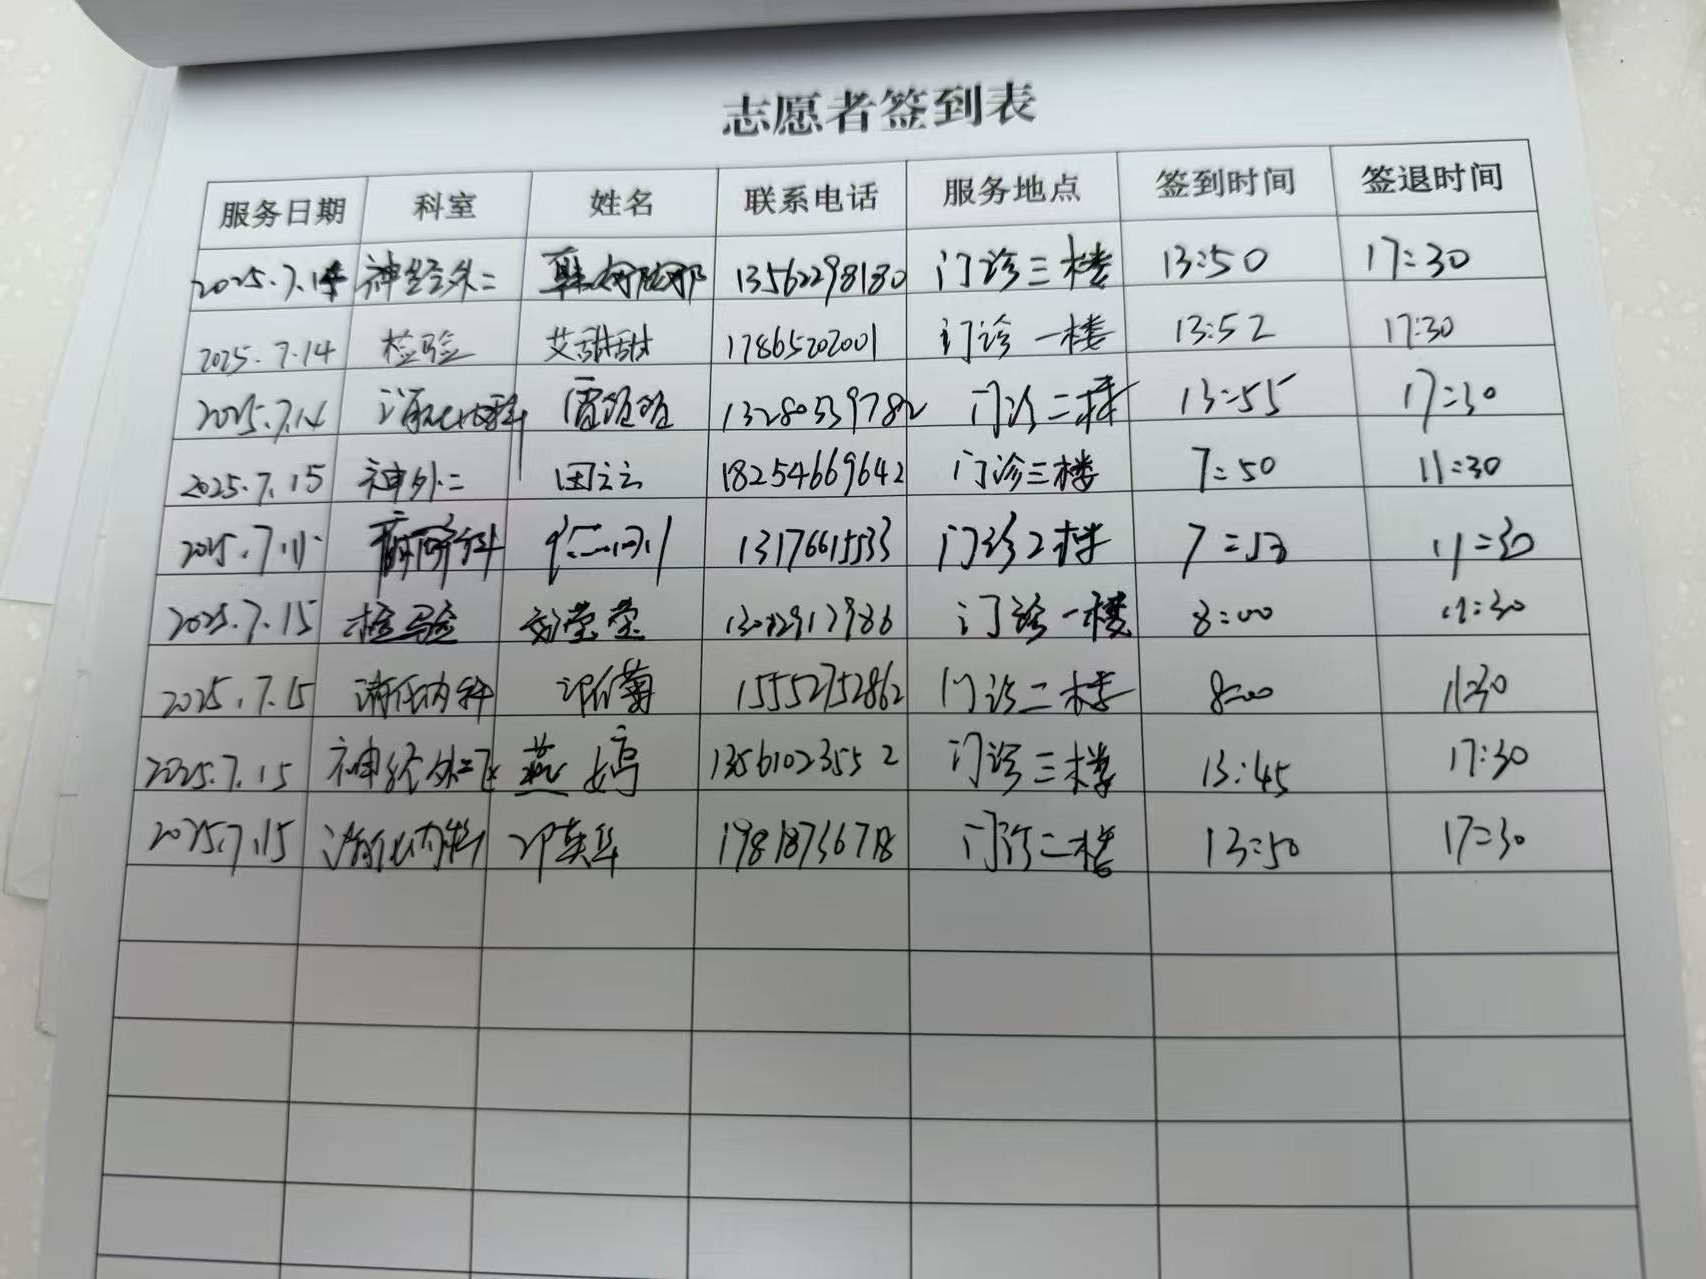 志愿者签到表
服务日期 科室 姓名 联系电话 服务地点 签到时间 签退时间
2025.7.14 神经外二 13562298180 门诊三楼 13:50 17:30
2025.7.14 检验 艾甜甜 17865202001 门诊一楼 13:52 17:30
2025.7.14 消化内科 13280339782 门诊二楼 13:55 17:30
2025.7.15 神外二 田云云 18254669642 门诊三楼 7:50 11:30
2025.7.15 13176615533 门诊2楼 7:50 11:30
2025.7.15 检验 莹莹 门诊一楼 8:00 11:30
2025.7.15 消化内科 15552752862 门诊二楼 8:00 11:30
2025.7.15 神经外二 燕 嫣 13561023552 门诊三楼 13:45 17:30
2025.7.15 消化内科 邓英华 门诊二楼 13:50 17:30